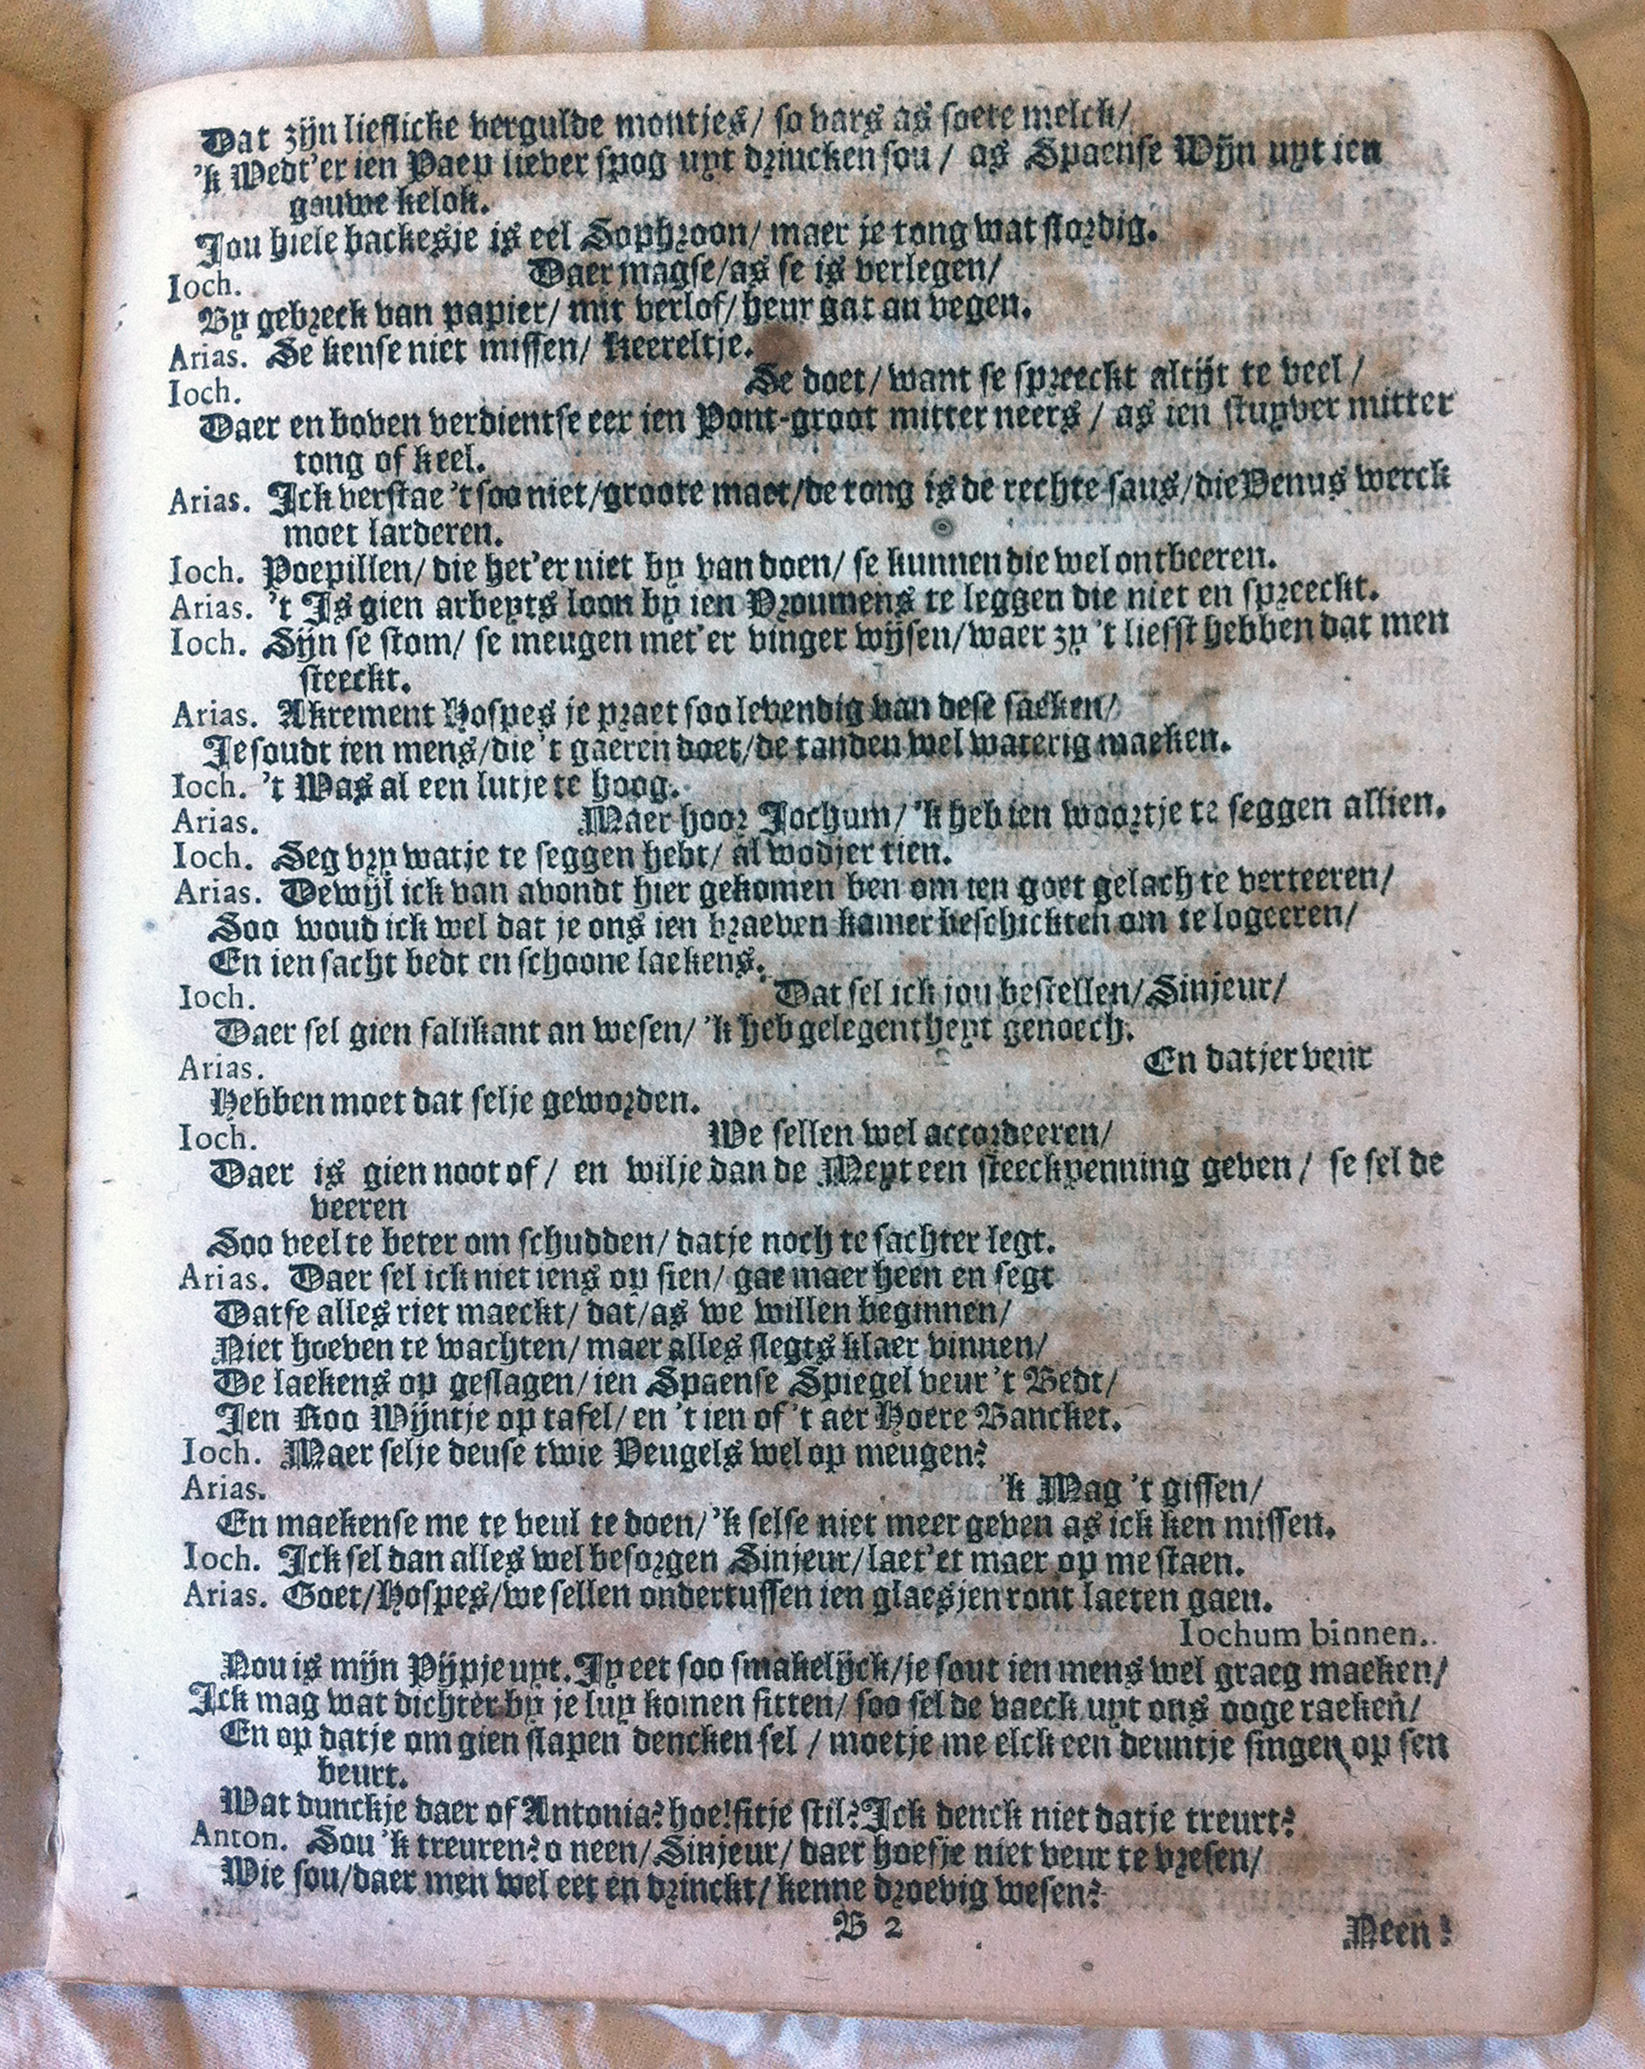 Dat zijn lieflicke vergulde montjes/ so vars as soete melck/
'k Wedt'er ien Paep liever spog uyt drincken sou / as Spaense Wijn uyt ien
gouwe kelok.
Jou hiele backesje is eel Sophroon/ maer je tong wat slordig.
Ioch. Daer magse/as se is verlegen/
By gebreck van papier/ mit verlof/heur gat an vegen.
Arias. Se kense niet missen/ keereltje.
Ioch. Se doet/ want se spreeckt altijt te veel /
Daer en boven verdientse eer ien Pont-groot mitter neers / as ien stuyver mitter
tong of keel.
Arias. Ick verstae 't soo niet/groote maet/de tong is de rechte saus/die Venus werck
moet larderen.
Ioch. Poepillen/ die het'er niet by van doen/ se kunnen die wel ontbeeren.
Arias. 't Is gien arbeyts loon by ien Vroumens te leggen die niet en spreeckt.
Ioch. Sijn se stom/ se meugen met'er vinger wijsen/waer zy 't liefst hebben dat men
steeckt.
Arias. Akrement Hospes je praet soo levendig van dese saeken/
Je soudt ien mens/die 't gaeren doet/de tanden wel waterig maeken.
Ioch. 't Was al een lutje te hoog.
Arias. Maer hoor Jochum/ 'k heb ien woortje te seggen allien.
Ioch. Seg vry watje te seggen hebt/ al wodjer tien.
Arias. Dewijl ick van avondt hier gekomen ben om ien goet gelach te verteeren/
Soo woud ick wel dat je ons ien braeven kamer beschickten om te logeeren/
En ien sacht bedt en schoone laekens.
Ioch. Dat sel ick jou bestellen/Sinjeur/
Daer sel gien falikant an wesen/ 'k heb gelegentheyt genoech.
Arias. En datjer veur
Hebben moet dat selje geworden.
Ioch. We sellen wel accordeeren/
Daer is gien noot of / en wilje dan de Meyt een steeckpenning geven / se sel de
veeren
Soo veel te beter om schudden/ datje noch te sachter legt.
Arias. Daer sel ick niet iens op sien/ gae maer heen en segt
Datse alles riet maeckt/ dat/as we willen beginnen/
Niet hoeven te wachten/ maer alles slegts klaer vinnen/
De laekens op geslagen/ien Spaense Spiegel veur 't Bedt/
Ien Roo Wijntje op tafel/en 't ien of 't aer Hoere Bancket.
Ioch. Maer selje deuse twie Veugels wel op meugen?
Arias. 'k Mag 't gissen/
En maekense me te veul te doen/'k selse niet meer geven as ick ken missen.
Ioch. Ick sel dan alles wel besorgen Sinjeur/laet'et maer op me staen.
Arias. Goet/Hospes/we sellen ondertussen ien glaesjen ront laeten gaen.
Iochum binnen.
Nou is mijn Pijpje uyt. Jy eet soo smakelijck/je sout ien mens wel graeg maeken/
Ick mag wat dichter by je luy komen sitten/ soo sel de vaeck uyt ons ooge raeken/
En op datje om gien slapen dencken sel / moetje me elck een deuntje singen op sen
beurt.
Wat dunckje daer of Antonia? hoe! sitje stil? Ick denck niet datje treurt?
Anton. Sou 'k treuren? o neen/Sinjeur/ daer hoefje niet veur te vresen/
Wie sou/daer men wel eet en drinckt/ kenne droevig wesen?
B 2
Neen!